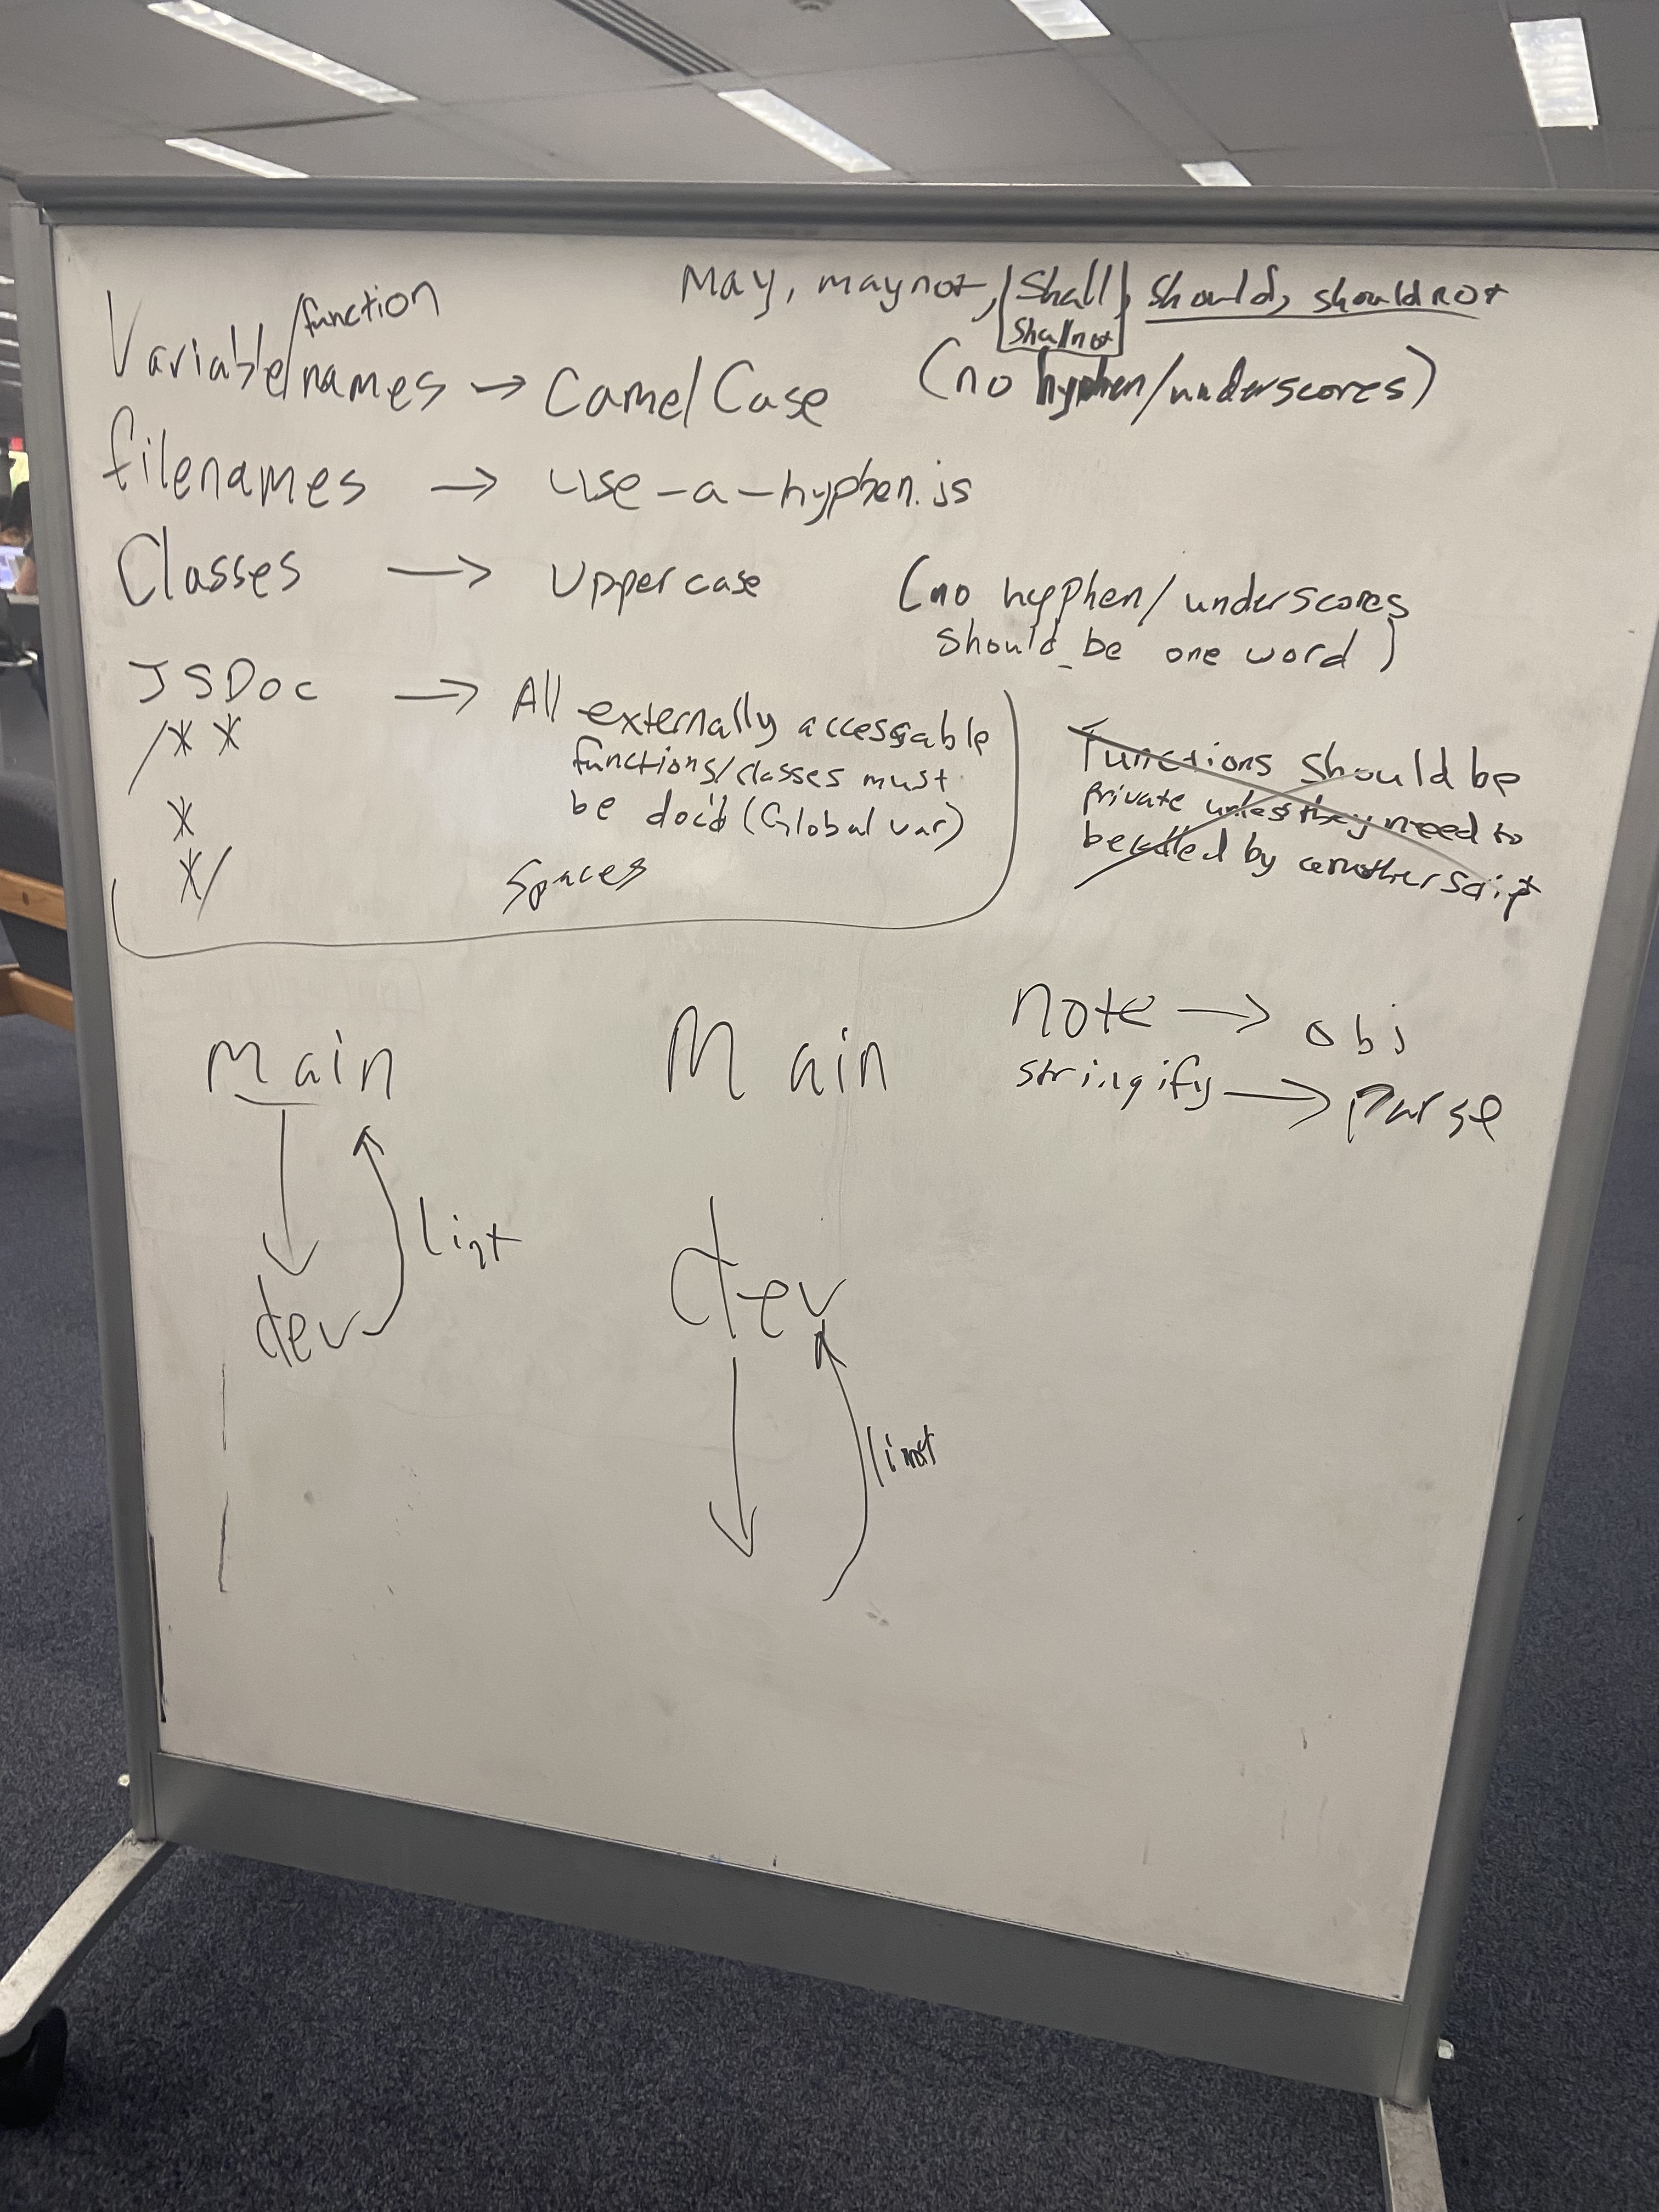 May, maynot, Shall, should, should not
Shall not
Variable/function names → Camel Case (no hyphen/underscores)
filenames → use-a-hyphen.js
Classes → Uppercase (no hyphen/underscores
should be one word)
JSDoc → All externally accessable
functions/classes must
be doc'd (Global var)
/**
*
*/
Spaces
Functions should be
private unless they need to
be called by another script
Main
lint
dev
Main
dev
lint
note → obj
stringify → parse